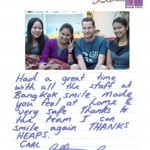 Had a great time
with all the staff at
Bangkok smile, made
you feel at home &
very safe Thanks to
the Team I can
smile again THANKS
HEAPS.
CARL